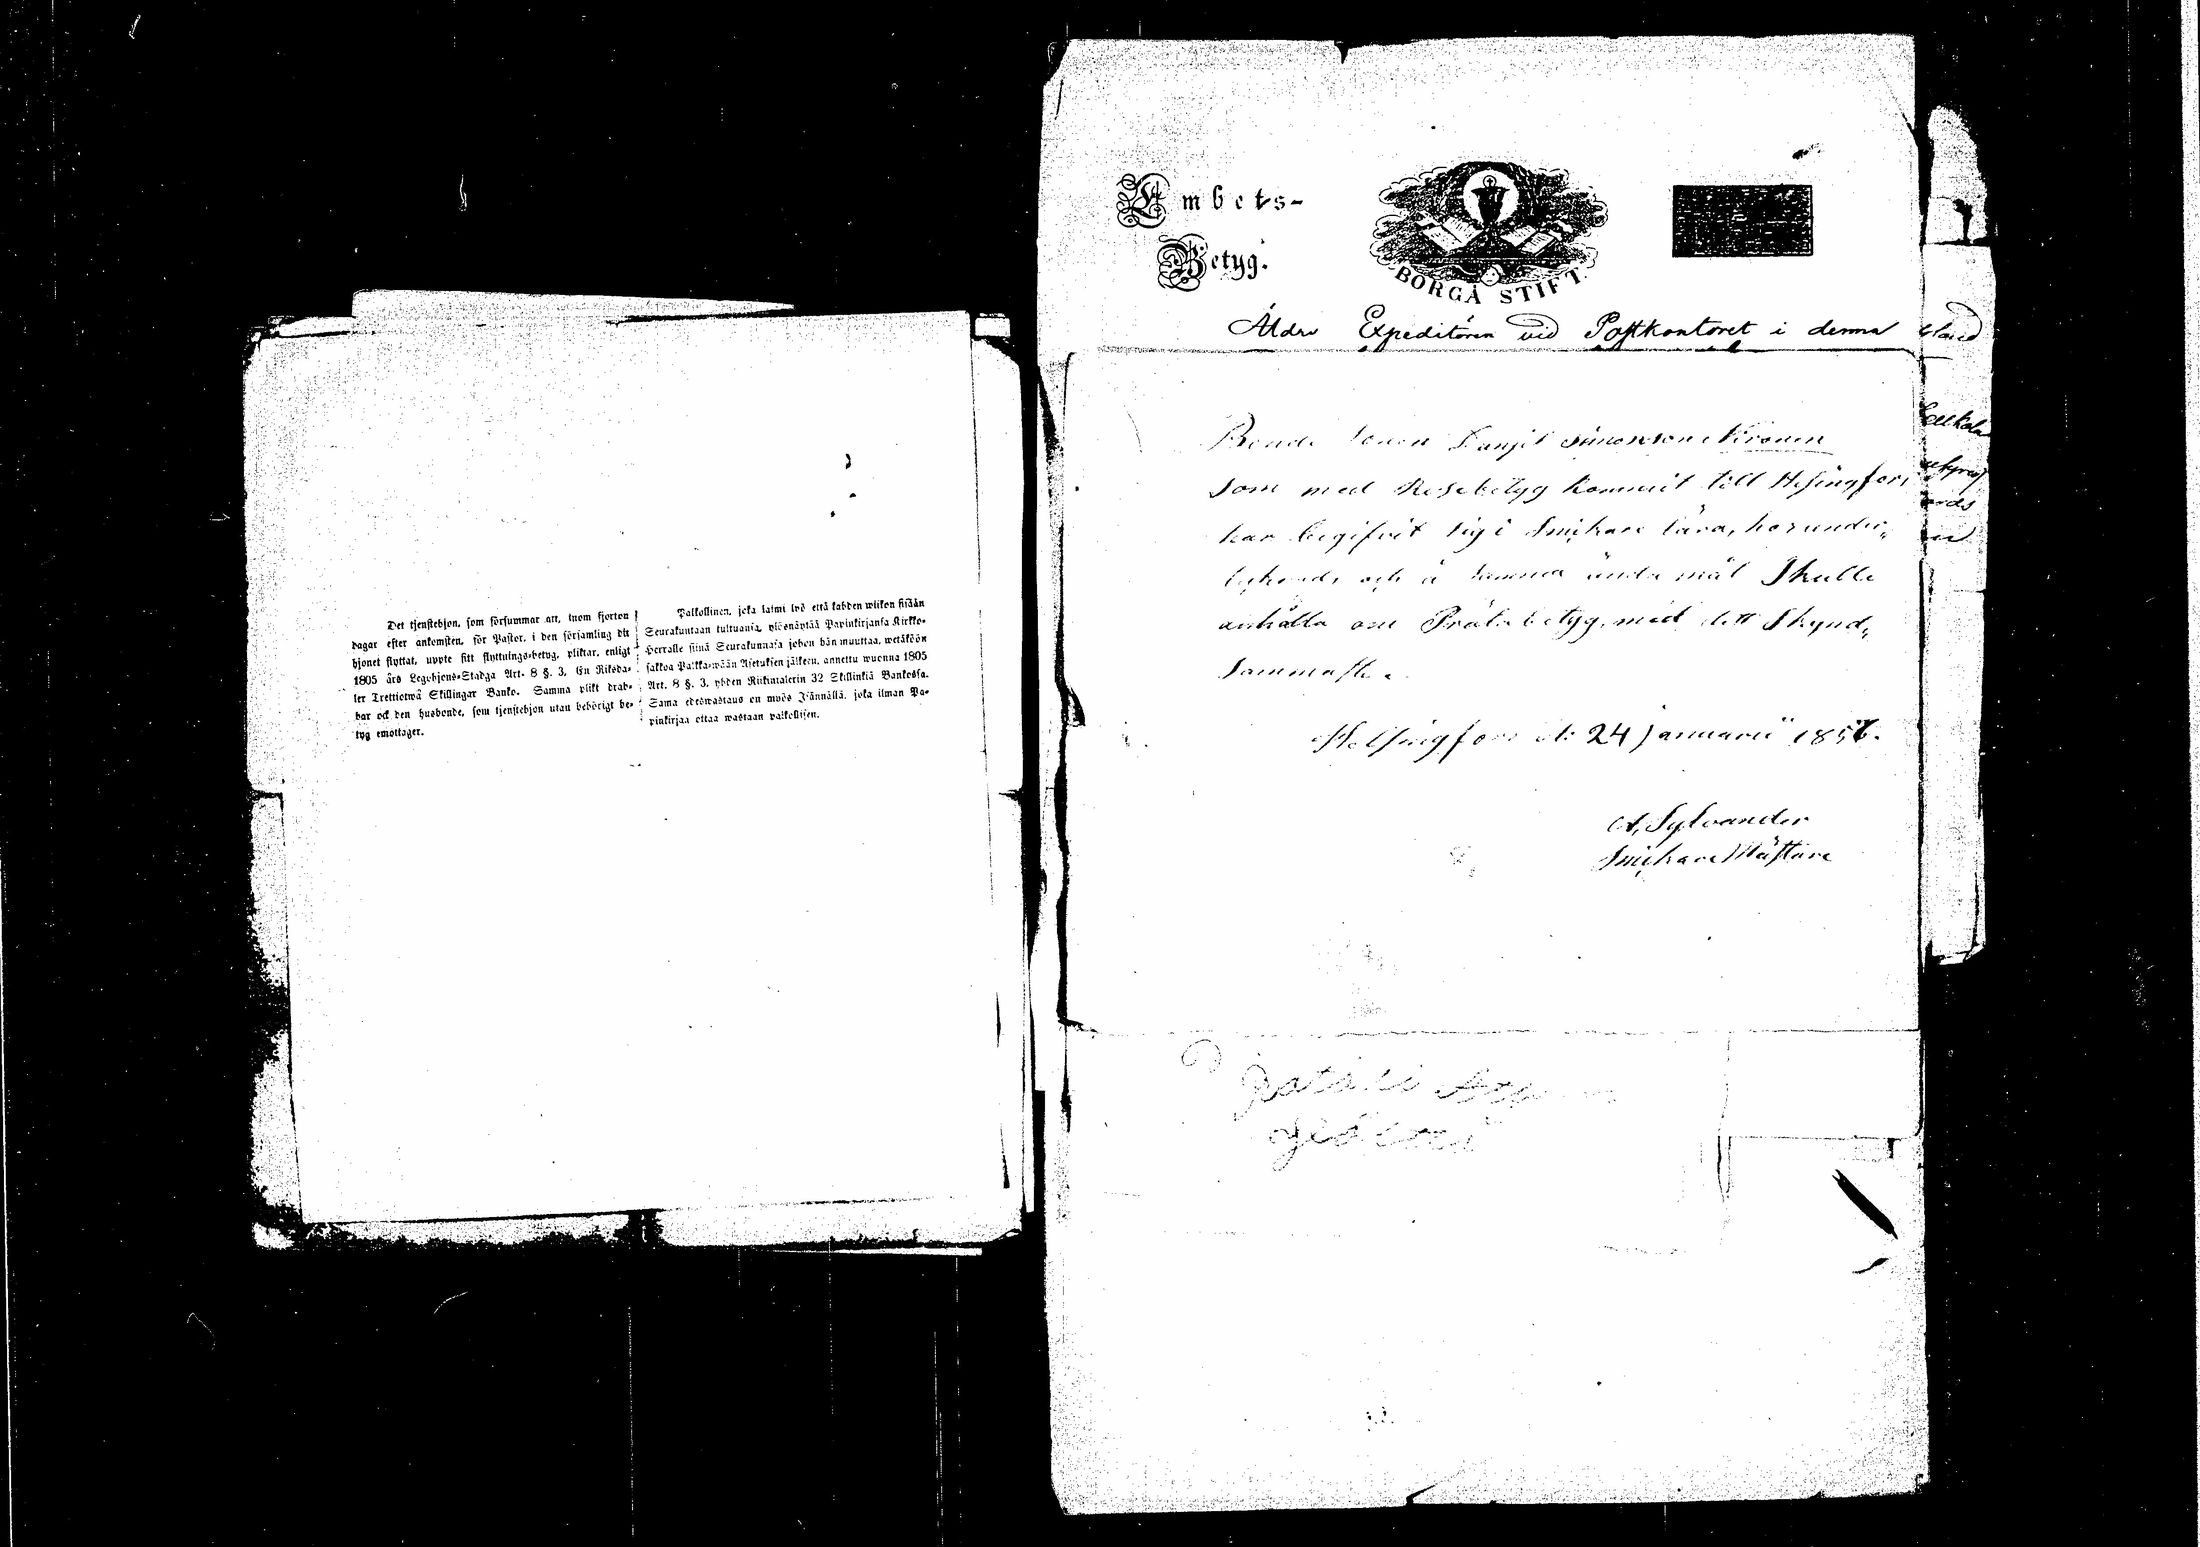 Det tjenstehjon, som försummar att, inom fjorton
dagar efter ankomsten, för Pastor, i den församling dit
hjonet flyttat, uppte sitt flyttnings-betyg, pliktar, enligt
1805 års Legohjons-Stadga Art. 8 §. 3, En Riksda-
ler Trettiotwå Skillingar Banko. Samma plikt drab-
bar ock den husbonde, som tjenstehjon utan behörigt be-
tyg emottager.
Palkollinen, joka laimi lyö että kahden wiikon sisään
Seurakuntaan tultuania, ylösnäyttää Papinkirjansa Kirkko-
Herralle siinä Seurakunnasa johon hän muuttaa, wetäköön
sakkoa Palkka-wään Asetuksen jälkeen, annettu wuonna 1805
Art. 8 §. 3, yhden Riikintalerin 32 Skillinkiä Bankossa.
Sama edeswastaus on myös Isännällä, joka ilman Pa-
pinkirjaa ottaa wastaan palkollisen.
Embets-
Betyg.
BORGÅ STIFT.
Äldre Expeditören vid Postkontoret i denna stad
Bonde sonen Danjel Simonson
som med Resebetyg kommit till Hesingfors
har begifvit sig i Snickare lära,
och å samma ända mål Skulle
anhålla om Präste betyg, med dett Skynd,,
sammaste.
Helsingfors d: 24 Januarii
A, Sylvander
Snickare Mästare